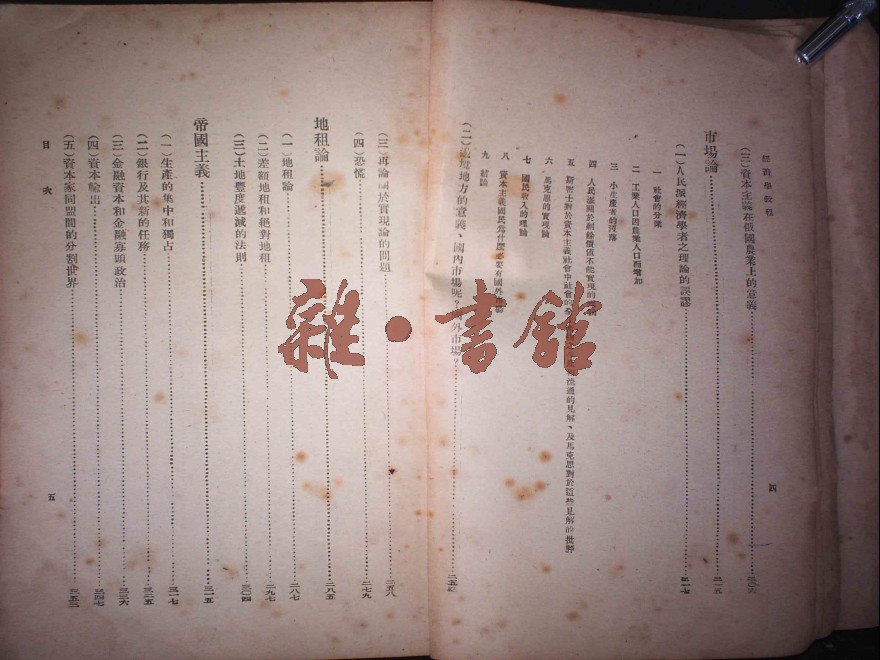 經濟學教程
四
(三)資本主義在俄國農業上的意義……二〇六
市場論……二一五
(一)人民派經濟學者之理論的誤謬……二一七
一 社會的分業
二 工業人口因農業人口而增加
三 小生產者的沒落
四 人民派關於剩餘價值不能實現的
五 斯密士對於資本主義社會中社會的 流通的見解、及馬克思對於這些見解的批評
六 馬克思的實現論
七 國民收入的理論
八 資本主義國民爲什麼必要有國外市場
九 結論
(二) 地方的意義、國內市場呢?國外市場?……二五
(三)再論關於實現論的問題……二五八
(四)恐慌……二七九
地租論……二八五
(一)地租論……二八七
(二)差額地租和絕對地租……二九七
(三)土地豐度遞減的法則……三〇四
帝國主義……三一五
(一)生產的集中和獨占……三一七
(二)銀行及其新的任務……三二五
(三)金融資本和金融寡頭政治……三三六
(四)資本輸出……三四七
(五)資本家同盟間的分割世界……三五三
目次
五
雜·書館